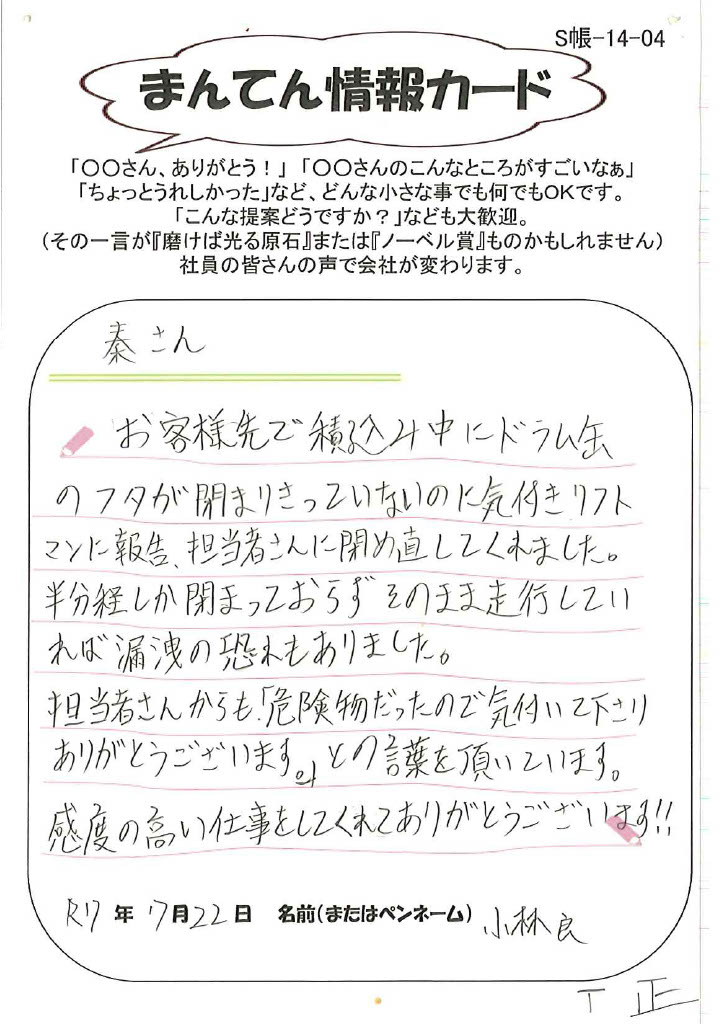 S帳-14-04
まんてん情報カード
「〇〇さん、ありがとう！」「〇〇さんのこんなところがすごいなぁ」
「ちょっとうれしかった」など、どんな小さな事でも何でもOKです。
「こんな提案どうですか？」なども大歓迎。
（その一言が『磨けば光る原石』または『ノーベル賞』ものかもしれません）
社員の皆さんの声で会社が変わります。
秦さん
お客様先で積込み中にドラム缶
のフタが閉まりきっていないのに気付きリフト
マンに報告、担当者さんに閉め直してくれました。
半分程しか閉まっておらずそのまま走行してい
れば漏洩の恐れもありました。
担当者さんからも「危険物だったので気付いて下さり
ありがとうございます。」との言葉を頂いています。
感度の高い仕事をしてくれてありがとうございます!!
R7年 7月22日 名前（またはペンネーム） 小林良
T 正